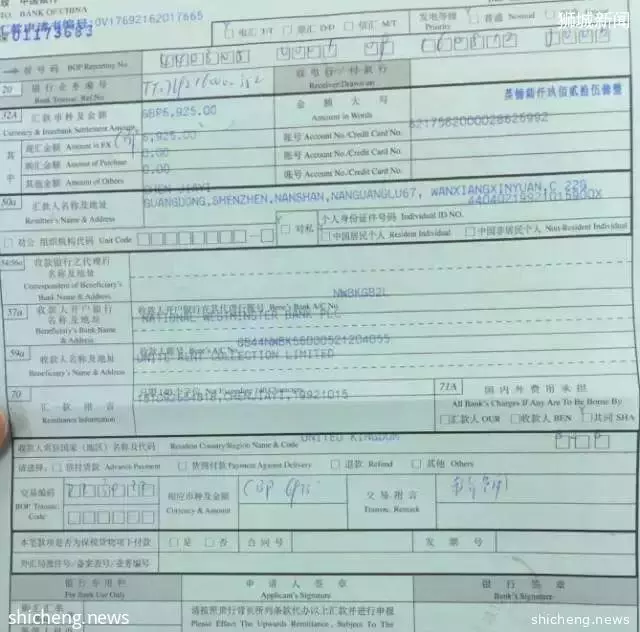 TO: BANK OF CHINA
汇款申请书编号:OVI7692162017665
01173683
狮城新闻
电汇 T/T 票汇 D/D 信汇 M/T
发电等级 Priority 普通 Normal
报号码 BOP Reporting No.
20 银行业务编号 Bank Transac. Ref.No
收电行/付款行 Receiver/Drawn on
32A 汇款币种及金额 Currency & Interbank Settlement Amount
GBP6,925.00
金额大写 Amount in Words
英镑陆仟玖佰贰拾伍镑整
其中
现汇金额 Amount in FX
6,925.00
账号 Account No./Credit Card No.
6217562000028626992
购汇金额 Amount of Purchase
0.00
账号 Account No./Credit Card No.
其他金额 Amount of Others
0.00
账号 Account No./Credit Card No.
50a 汇款人名称及地址 Remitter's Name & Address
CHEN JIAYI
GUANGDONG,SHENZHEN,NANSHAN,NANGUANGLU67, WANXIANGXINYUAN,C 22G
对公 组织机构代码 Unit Code
对私
个人身份证件号码 Individual ID NO.
中国居民个人 Resident Individual 中国非居民个人 Non-Resident Individual
54/56a 收款银行之代理行名称及地址
Correspondent of Beneficiary's Bank Name & Address
NWBKGB2L
57a 收款人开户银行名称及地址
Beneficiary's Bank Name & Address
收款人开户银行在其代理行账号 Bene's Bank A/C No.
NATIONAL WESTMINSTER BANK PLC
59a 收款人名称及地址
Beneficiary's Name & Address
收款人账号 Bene's A/C No.
UNITE RENT COLLECTION LIMITED
70 汇款附言 Remittance Information
只限140个字位 Not Exceeding 140 Characters
71A 国内外费用承担
All Bank's Charges If Any Are To Be Borne By
汇款人 OUR 收款人 BEN 共同 SHA
收款人常驻国家(地区)名称及代码 Resident Country/Region Name & Code
UNITED KINGDOM
请选择: 预付货款 Advance Payment 货到付款 Payment Against Delivery 退款 Refund 其他 Others
交易编码 BOP Transac. Code
相应币种及金额 Currency & Amount
交易附言 Transac. Remark
本笔款项是否为保税货物项下付款 是 否 合同号 发票号
外汇局批件号/备案表号/业务编号
银行专用栏 For Bank Use Only
申请人签章 Applicant's Signature
银行签章 Bank's Signature
请按照贵行背页所列条款代办以上汇款并进行申报
Please Effect The Upwards Remittance, Subject To The
shicheng.news
shicheng.news